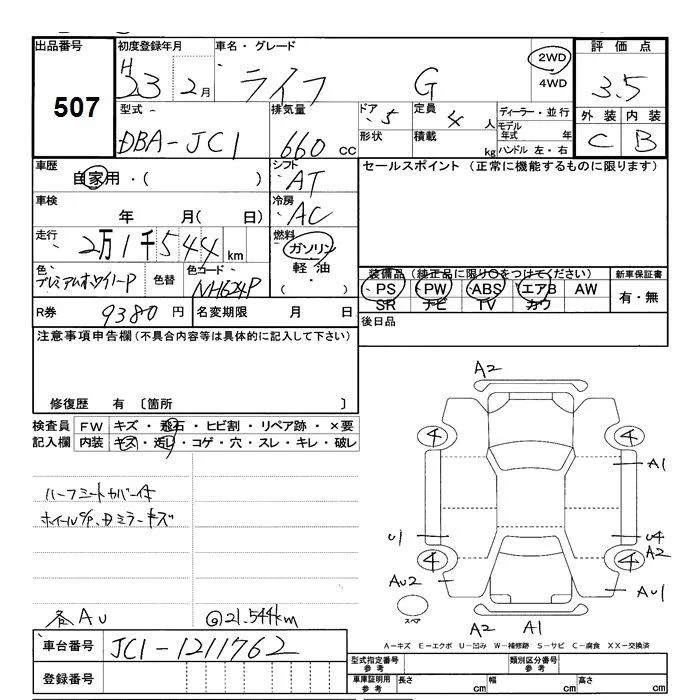 出品番号 初度登録年月 車名・グレード 評価点
507 H23 2月 ライフ G 2WD 3.5
4WD
外装 内装
型式 排気量 ドア 定員 ディーラー・並行
DBA-JC1 660 cc 5 4人 モデル年式 年
形状 積載 kg ハンドル 左・右 C B
車歴 自家用・( ) シフト AT セールスポイント (正常に機能するものに限ります)
車検 年 月( 日) 冷房 AC
走行 2万1千544km 燃料 ガソリン
軽油
・( )
色 プレミアムホワイトP 色替 色コード NH624P
装備品 (純正品に限り○をつけてください) 新車保証書
・PS ・PW ・ABS エアB AW 有・無
SR ナビ TV カワ
R券 9380円 名変期限 月 日 後日品
注意事項申告欄 (不具合内容等は具体的に記入して下さい)
修復歴 有 〔箇所 〕
検査員 FW キズ・飛石・ヒビ割・リペア跡・×要
記入欄 内装 キズ・汚レ・コゲ・穴・スレ・キレ・破レ
ハーフシートカバー付
ホイールS/P、Dミラーキズ
各AU @21.544km
A2
4 4
A1
U1 U4
4 4 A2
AU2 AU1
スペア
A2 A1
A-キズ E-エクボ U-凹み W-補修跡 S-サビ C-腐食 XX-交換済
車台番号 JC1-1211762
登録番号
型式指定番号 参考 類別区分番号 参考
車庫証明用 参考 長さ cm 幅 cm 高さ cm